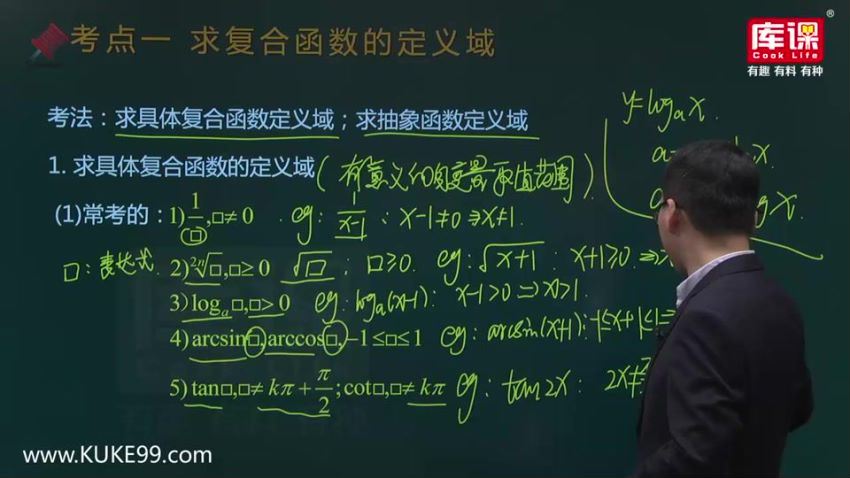 考点一 求复合函数的定义域
库课®
Cook Life
有趣 有料 有种
考法：求具体复合函数定义域；求抽象函数定义域
y=logₐx.
1. 求具体复合函数的定义域（有意义的自变量取值范围）
(1)常考的：1) 1/□,□≠0 eg: 1/(x-1) : x-1≠0 ⇒x≠1.
□：表达式. 2) ²ⁿ√□,□≥0 √□ ; □≥0. eg: √(x+1) : x+1≥0.
3) logₐ□,□>0 eg: logₐ(x-1): x-1>0 ⇒ x>1.
4) arcsin□,arccos□,-1≤□≤1 eg: arcsin(x+1): -1≤x+1≤1⇒
5) tan□,□≠kπ+π/2;cot□,□≠kπ eg: tan2x: 2x≠
www.KUKE99.com